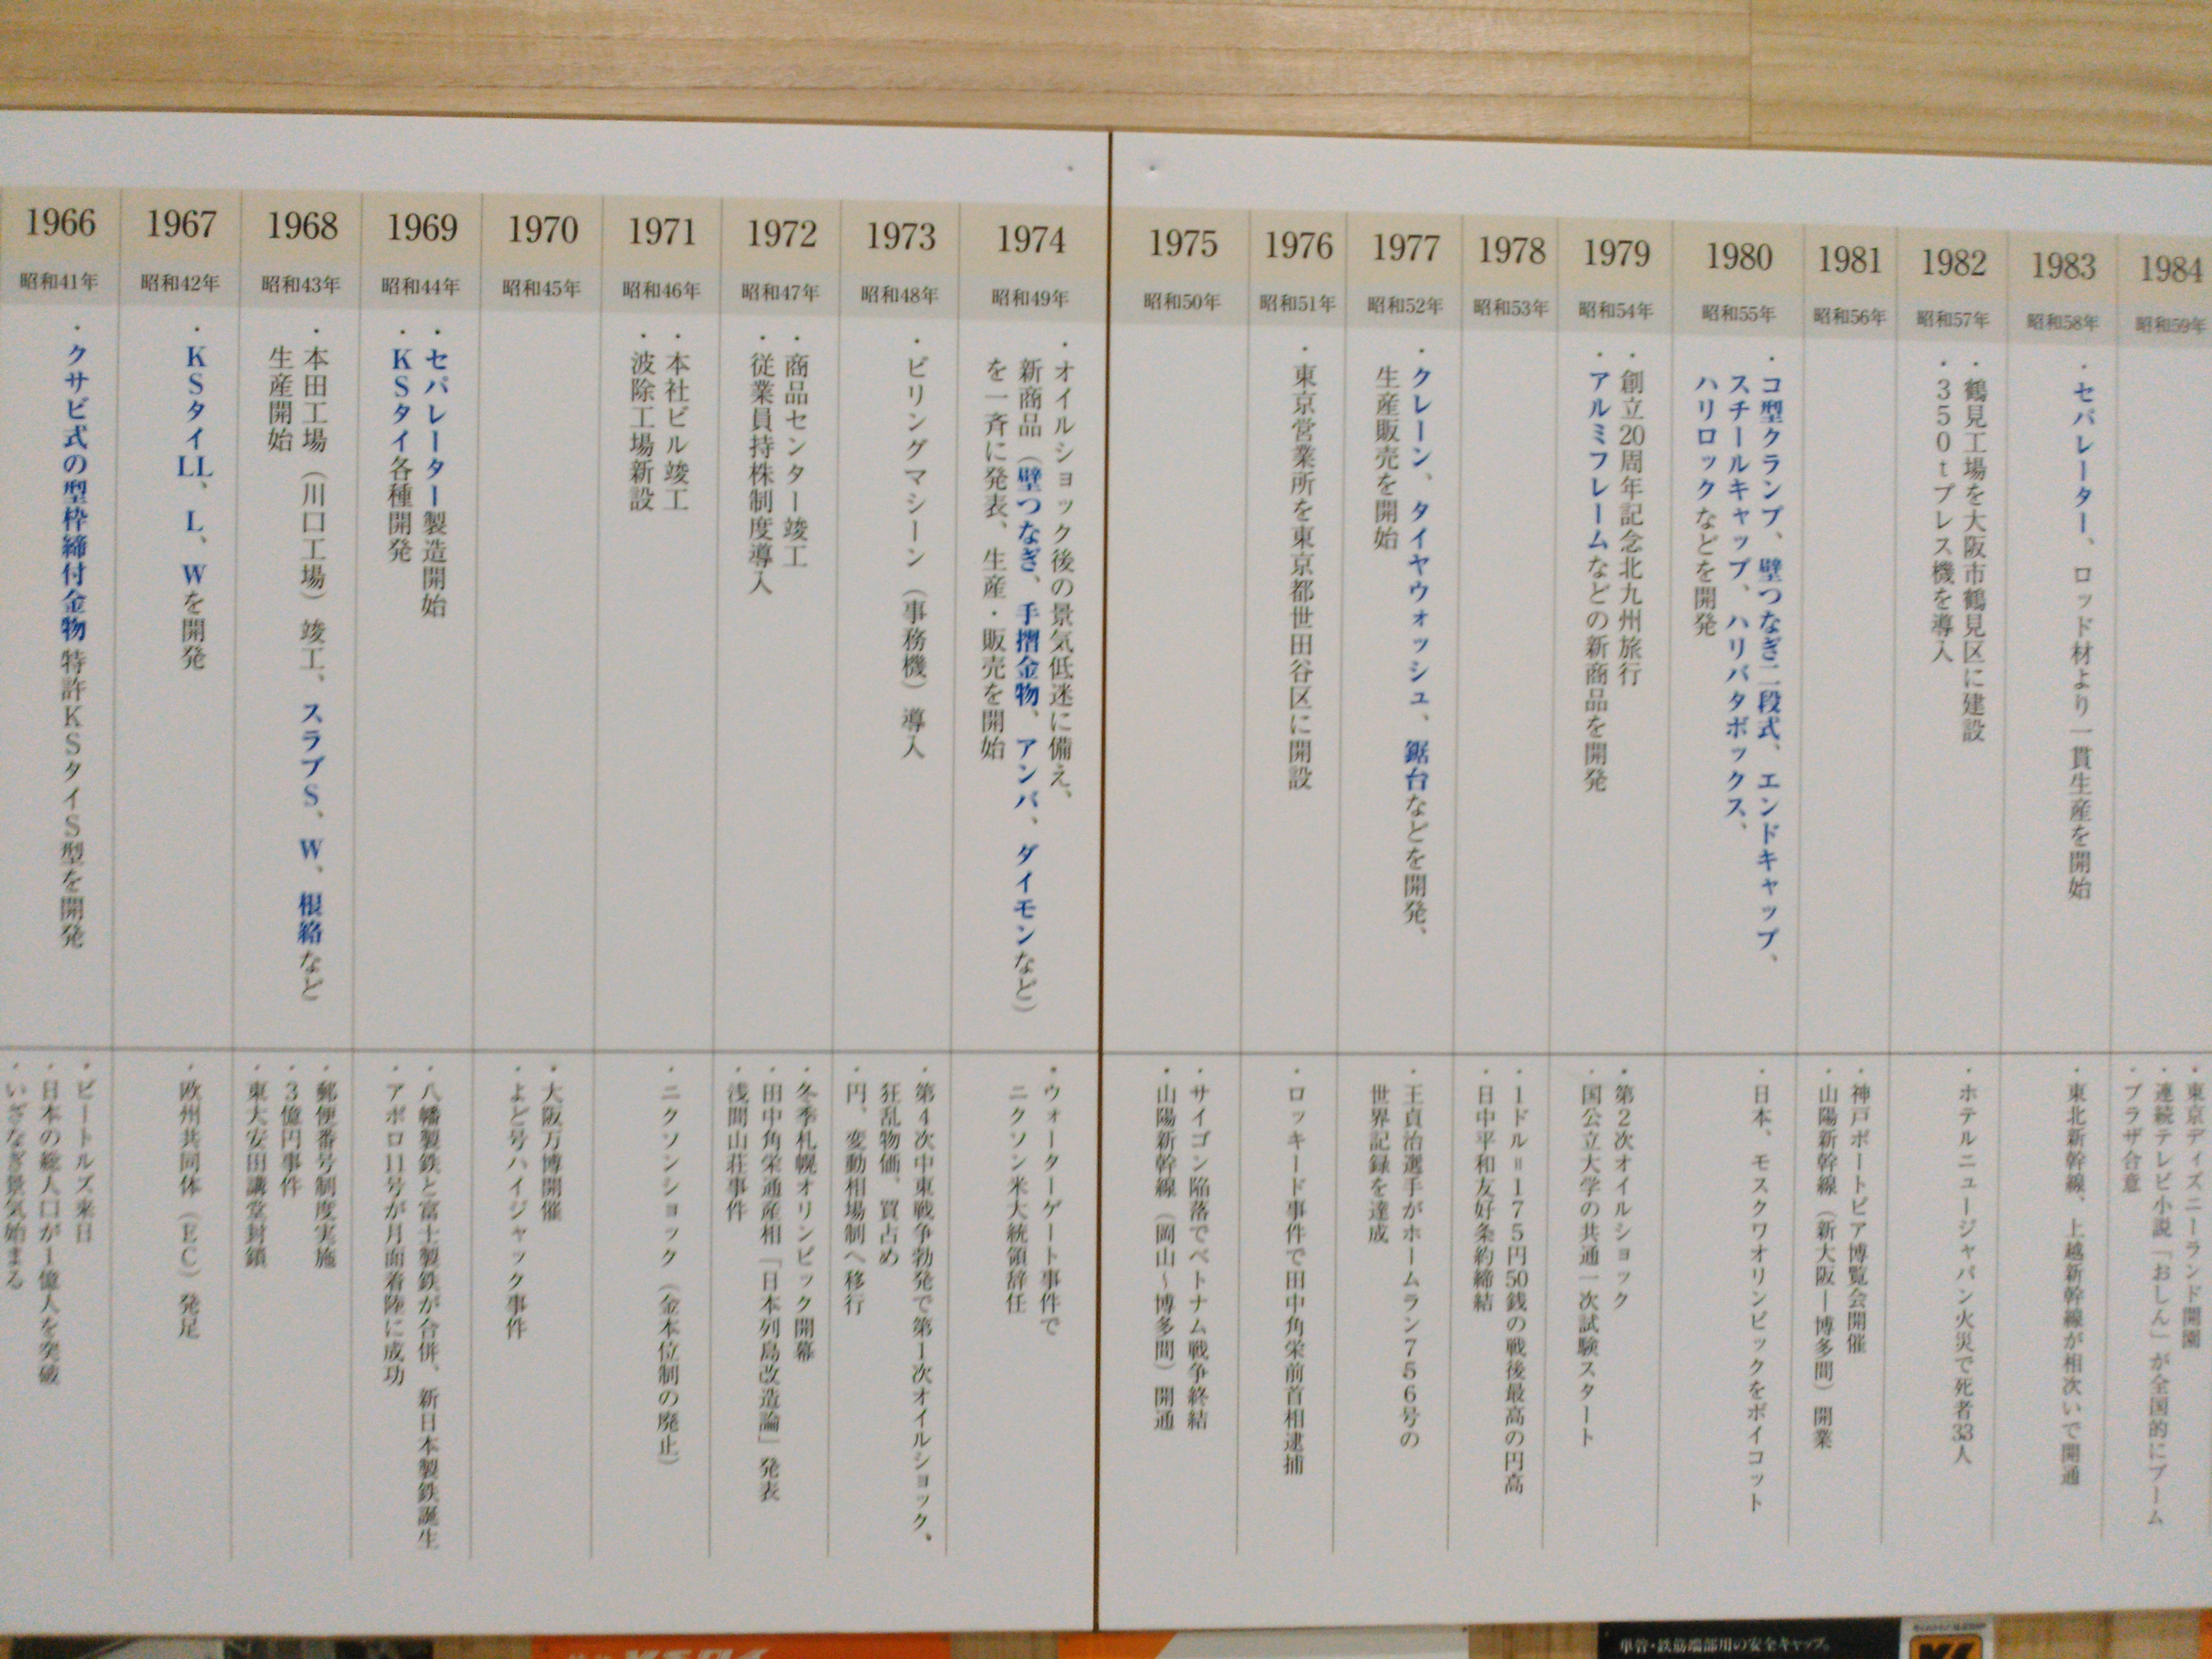 1966
昭和41年
・クサビ式の型枠締付金物 特許KSタイS型を開発
・ビートルズ来日
・日本の総人口が1億人を突破
・いざなぎ景気始まる
1967
昭和42年
・KSタイLL、L、Wを開発
・欧州共同体（EC）発足
1968
昭和43年
・本田工場（川口工場）竣工、スラブS、W、根絡など
生産開始
・郵便番号制度実施
・3億円事件
・東大安田講堂封鎖
1969
昭和44年
・セパレーター製造開始
・KSタイ各種開発
・八幡製鉄と富士製鉄が合併、新日本製鉄誕生
・アポロ11号が月面着陸に成功
1970
昭和45年
・大阪万博開催
・よど号ハイジャック事件
1971
昭和46年
・本社ビル竣工
・波除工場新設
・ニクソンショック（金本位制の廃止）
1972
昭和47年
・商品センター竣工
・従業員持株制度導入
・冬季札幌オリンピック開幕
・田中角栄通産相「日本列島改造論」発表
・浅間山荘事件
1973
昭和48年
・ビリングマシーン（事務機）導入
・第4次中東戦争勃発で第1次オイルショック、
狂乱物価、買占め
・円、変動相場制へ移行
1974
昭和49年
・オイルショック後の景気低迷に備え、
新商品（壁つなぎ、手摺金物、アンバ、ダイモンなど）
を一斉に発表、生産・販売を開始
・ウォーターゲート事件で
ニクソン米大統領辞任
1975
昭和50年
・サイゴン陥落でベトナム戦争終結
・山陽新幹線（岡山～博多間）開通
1976
昭和51年
・東京営業所を東京都世田谷区に開設
・ロッキード事件で田中角栄前首相逮捕
1977
昭和52年
・クレーン、タイヤウォッシュ、鋸台などを開発、
生産販売を開始
・王貞治選手がホームラン756号の
世界記録を達成
1978
昭和53年
・1ドル＝175円50銭の戦後最高の円高
・日中平和友好条約締結
1979
昭和54年
・創立20周年記念北九州旅行
・アルミフレームなどの新商品を開発
・第2次オイルショック
・国公立大学の共通一次試験スタート
1980
昭和55年
・コ型クランプ、壁つなぎ二段式、エンドキャップ、
スチールキャップ、ハリバタボックス、
ハリロックなどを開発
・日本、モスクワオリンピックをボイコット
1981
昭和56年
・神戸ポートピア博覧会開催
・山陽新幹線（新大阪ー博多間）開業
1982
昭和57年
・鶴見工場を大阪市鶴見区に建設
・350tプレス機を導入
・ホテルニュージャパン火災で死者33人
1983
昭和58年
・セパレーター、ロッド材より一貫生産を開始
・東北新幹線、上越新幹線が相次いで開通
1984
昭和59年
・東京ディズニーランド開園
・連続テレビ小説「おしん」が全国的にブーム
・プラザ合意
単管・鉄筋端部用の安全キャップ。